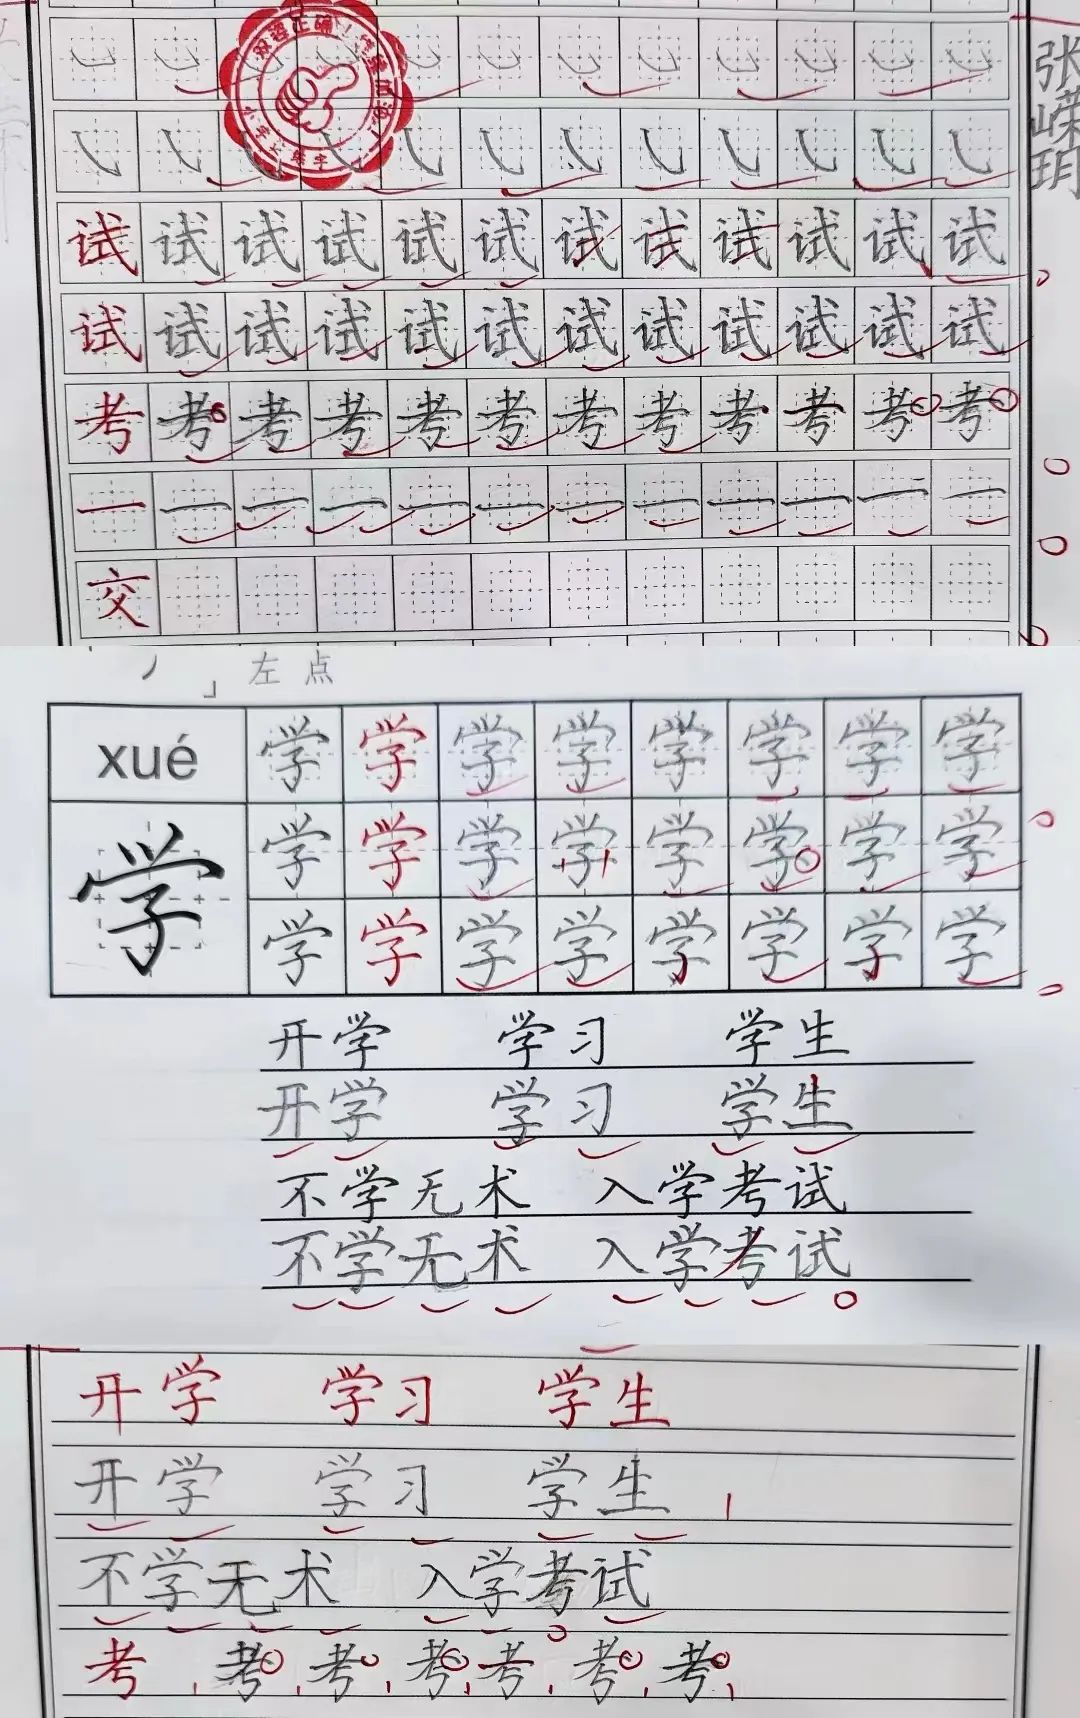 张嵘玥
试试试试试试试试试试试试
试试试试试试试试试试试试
考考考考考考考考考考考考
一一一一一一一一一一一一
交
左点
xué 学学学学学学学学
学 学学学学学学学学
学学学学学学学学
开学 学习 学生
开学 学习 学生
不学无术 入学考试
不学无术 入学考试
开学 学习 学生
开学 学习 学生
不学无术 入学考试
考 考 考 考 考 考 考